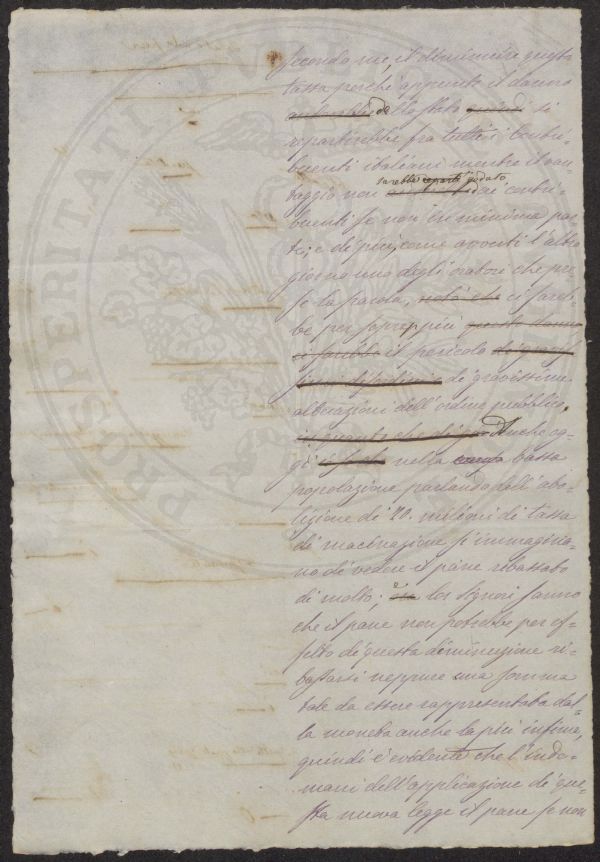 Secondo me, il diminuire questa
tassa perchè appunto il danno
dello Stato si
ripartirebbe fra tutti i Contri-
buenti italiani mentre il van-
sarebbe goduto
taggio non dai contri-
buenti se non in minima par-
te; e di più, come avvertì l'altro
giorno uno degli oratori che pre-
se la parola, ci sareb-
be per soprappiù
il pericolo
di gravissime
alterazioni dell'ordine pubblico.
Anche og-
gi nella bassa
popolazione parlando dell'abo-
lizione di 20. milioni di tassa
di macinazione s'immagina-
no di vedere il pane ribassato
di molto; e lor Signori sanno
che il pane non potrebbe per ef-
fetto di questa diminuzione ri-
bassarsi neppure una somma
tale da essere rappresentata dal-
la moneta anche la più infima,
quindi è evidente che l'indo-
mani dell'applicazione di que-
sta nuova legge il pane se non
PROSPERITATI PVBL